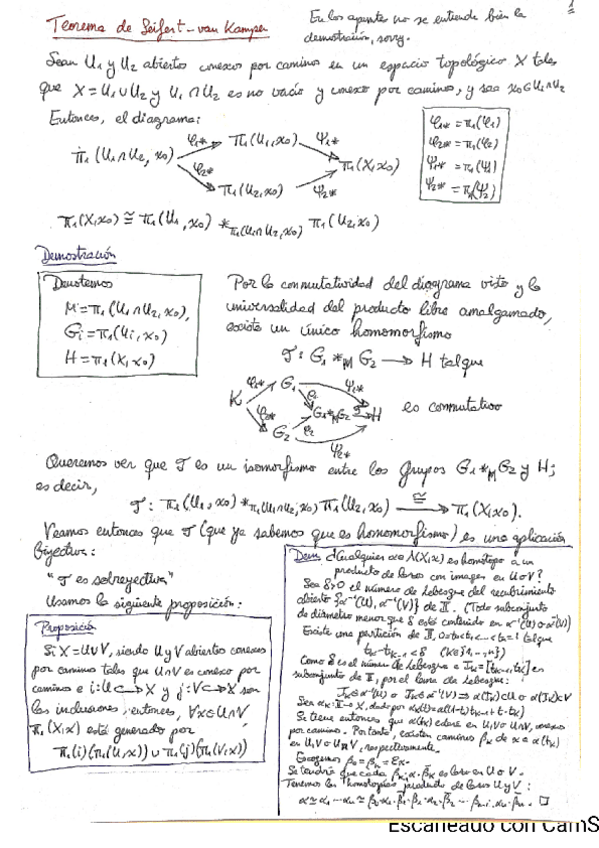 1
Teorema de Seifert-van Kampen
En los apuntes no se entiende bien la
demostración, sorry.
Sean U₁ y U₂ abiertos conexos por caminos en un espacio topológico X tales
que X = U₁∪U₂ y U₁∩U₂ es no vacío y conexo por caminos, y sea x₀∈U₁∩U₂
Entonces, el diagrama:
φ₁* = π₁(φ₁)
φ₂* = π₁(φ₂)
ψ₁* = π₁(ψ₁)
ψ₂* = π₁(ψ₂)
φ₁* π₁(U₁,x₀) ψ₁*
π₁(U₁∩U₂, x₀) π₁(X,x₀)
φ₂* π₁(U₂,x₀) ψ₂*
π₁(X,x₀) ≅ π₁(U₁,x₀) *π₁(U₁∩U₂,x₀) π₁(U₂,x₀)
Demostración
Denotemos
M = π₁(U₁∩U₂,x₀),
Gᵢ = π₁(Uᵢ,x₀)
H = π₁(X,x₀)
Por la conmutatividad del diagrama visto y la
universalidad del producto libre amalgamado,
existe un único homomorfismo
σ: G₁ *M G₂ → H tal que
φ₁* G₁ ψ₁*
K G₁*M G₂ σ H es conmutativo
φ₂* G₂ ψ₂*
Queremos ver que σ es un isomorfismo entre los grupos G₁*M G₂ y H;
es decir,
σ: π₁(U₁,x₀) *π₁(U₁∩U₂,x₀) π₁(U₂,x₀) ≅→ π₁(X,x₀).
Veamos entonces que σ (que ya sabemos que es homomorfismo) es una aplicación
biyectiva:
"σ es sobreyectiva"
Usamos la siguiente proposición:
Proposición
Si X = U∪V, siendo U y V abiertos conexos
por caminos tales que U∩V es conexo por
caminos e i: U ↪ X y j: V ↪ X son
las inclusiones, entonces, ∀x∈U∩V
π₁(X,x) está generado por
π₁(i)(π₁(U,x)) ∪ π₁(j)(π₁(V,x))
Dem ¿Cualquier α∈Λ(X,x) es homótopo a un
producto de lazos con imagen en U o V?
Sea δ>0 el número de Lebesgue del recubrimiento
abierto {α⁻¹(U), α⁻¹(V)} de II. (Todo subconjunto
de diámetro menor que δ está contenido en α⁻¹(U) o α⁻¹(V))
Existe una partición de II, 0=t₀<t₁<...<tₙ=1 tal que
tₖ-tₖ₋₁<δ (k∈{1,...,n})
Como δ es el número de Lebesgue e Iₖ=[tₖ₋₁,tₖ] es
subconjunto de II, por el lema de Lebesgue:
Iₖ⊂α⁻¹(U) o Iₖ⊂α⁻¹(V) ⇒ α(Iₖ)⊂U o α(Iₖ)⊂V
Se tiene entonces que α(tₖ) estará en U, V o U∩V, conexos
por caminos. Por tanto, existen caminos βₖ de x a α(tₖ)
en U, V o U∩V, respectivamente.
Escogemos β₀=βₙ=εₓ.
Se tendrá que cada
es lazo en U o V.
Tenemos la
producto de lazos U y V:
□
Escaneado con CamS